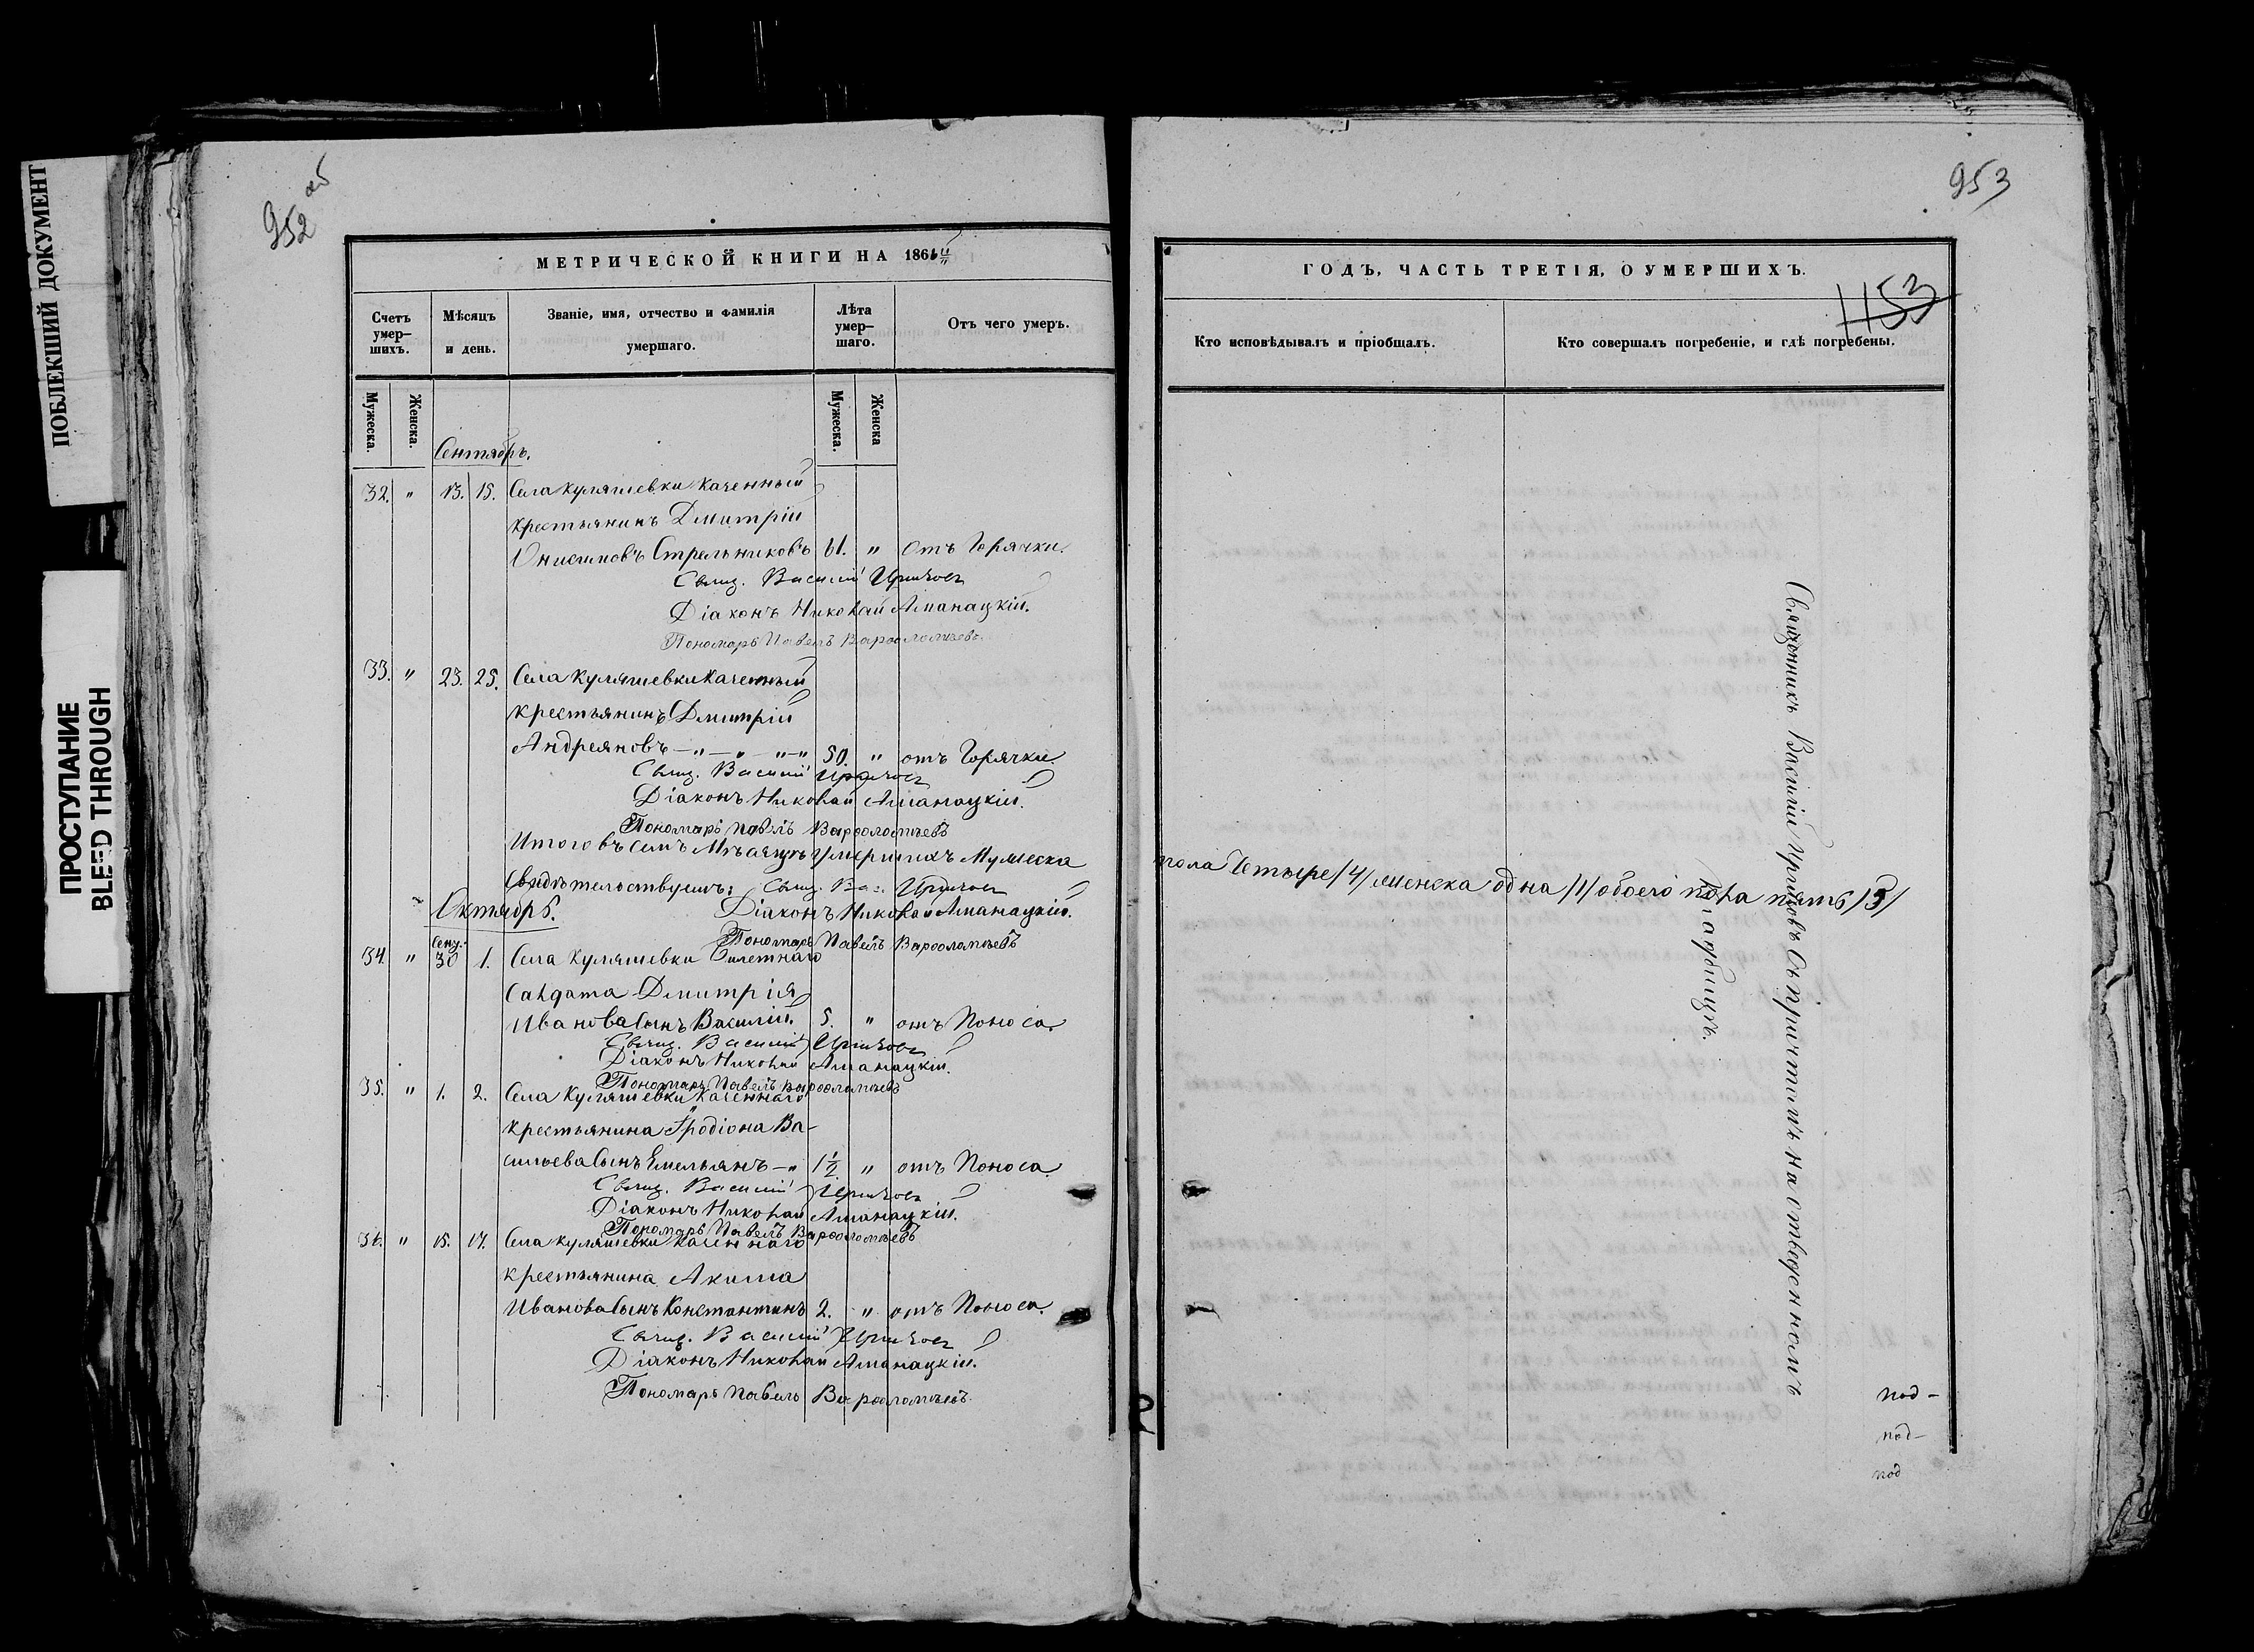 ПОБЛЕКШИЙ ДОКУМЕНТ
ПРОСТУПАНИЕ
BLEED THROUGH
952 об
МЕТРИЧЕСКОЙ КНИГИ НА 186
Счетъ умер–шихъ.
Мѣсяцъ и день.
Званіе, имя, отчество и фамилія умершаго.
Лѣта умер–шаго.
Отъ чего умеръ.
Мужеска.
Женска.
Мужеска.
Женска
Сентябрь.
32. " 13. 15. Села Куляшевки Казенный
крестьянинъ Дмитрій
Онисимовъ Стрельниковъ 61. " Отъ Горячки.
Свящ. Василій
Діаконъ Николай Аманацкій.
Пономарь Павелъ Варѳоломѣевъ.
33. " 23. 25. Села Куляшевки Казенный
крестьянинъ Дмитрій
Андреяновъ – " – " – " – " 50. " отъ Горячки.
Свящ. Василій
Діаконъ Николай Аманацкій.
Пономарь Павелъ Варѳоломѣевъ
Итого въ семъ Мѣсяцѣ умершихъ Мужеска
Свидѣтельствуемъ: Свящ. Вас.
Октябрь. Діаконъ Николай Аманацкій.
Пономарь Павелъ Варѳоломѣевъ
34. " Сент. 30 1. Села Куляшевки Билетнаго
Салдата Дмитрія
Иванова Сынъ Василій. 5. " отъ Поноса.
Свящ. Василій
Діаконъ Николай Аманацкій.
Пономарь Павелъ Варѳоломѣевъ
35. " 1. 2. Села Куляшевки Казеннаго
крестьянина Іродіона Ва-
сильева Сынъ Емельянъ – " 1 1/2 " отъ Поноса
Свящ. Василій
Діаконъ Николай Аманацкій.
Пономарь Павелъ Варѳоломѣевъ
36. " 15. 17. Села Куляшевки Казеннаго
крестьянина Акима
Иванова Сынъ Константинъ 2. " отъ Поноса.
Свящ. Василій
Діаконъ Николай Аманацкій.
Пономарь Павелъ Варѳоломѣевъ
953
ГОДЪ, ЧАСТЬ ТРЕТІЯ, О УМЕРШИХЪ.
1153
Кто исповѣдывалъ и пріобщалъ.
Кто совершалъ погребеніе, и гдѣ погребены.
пола Четыре /4/ женска одна /1/ обоего пола пять /5/
Священникъ Василій Съ причтомъ на отведенномъ
кладбищѣ.
под-
под-
под